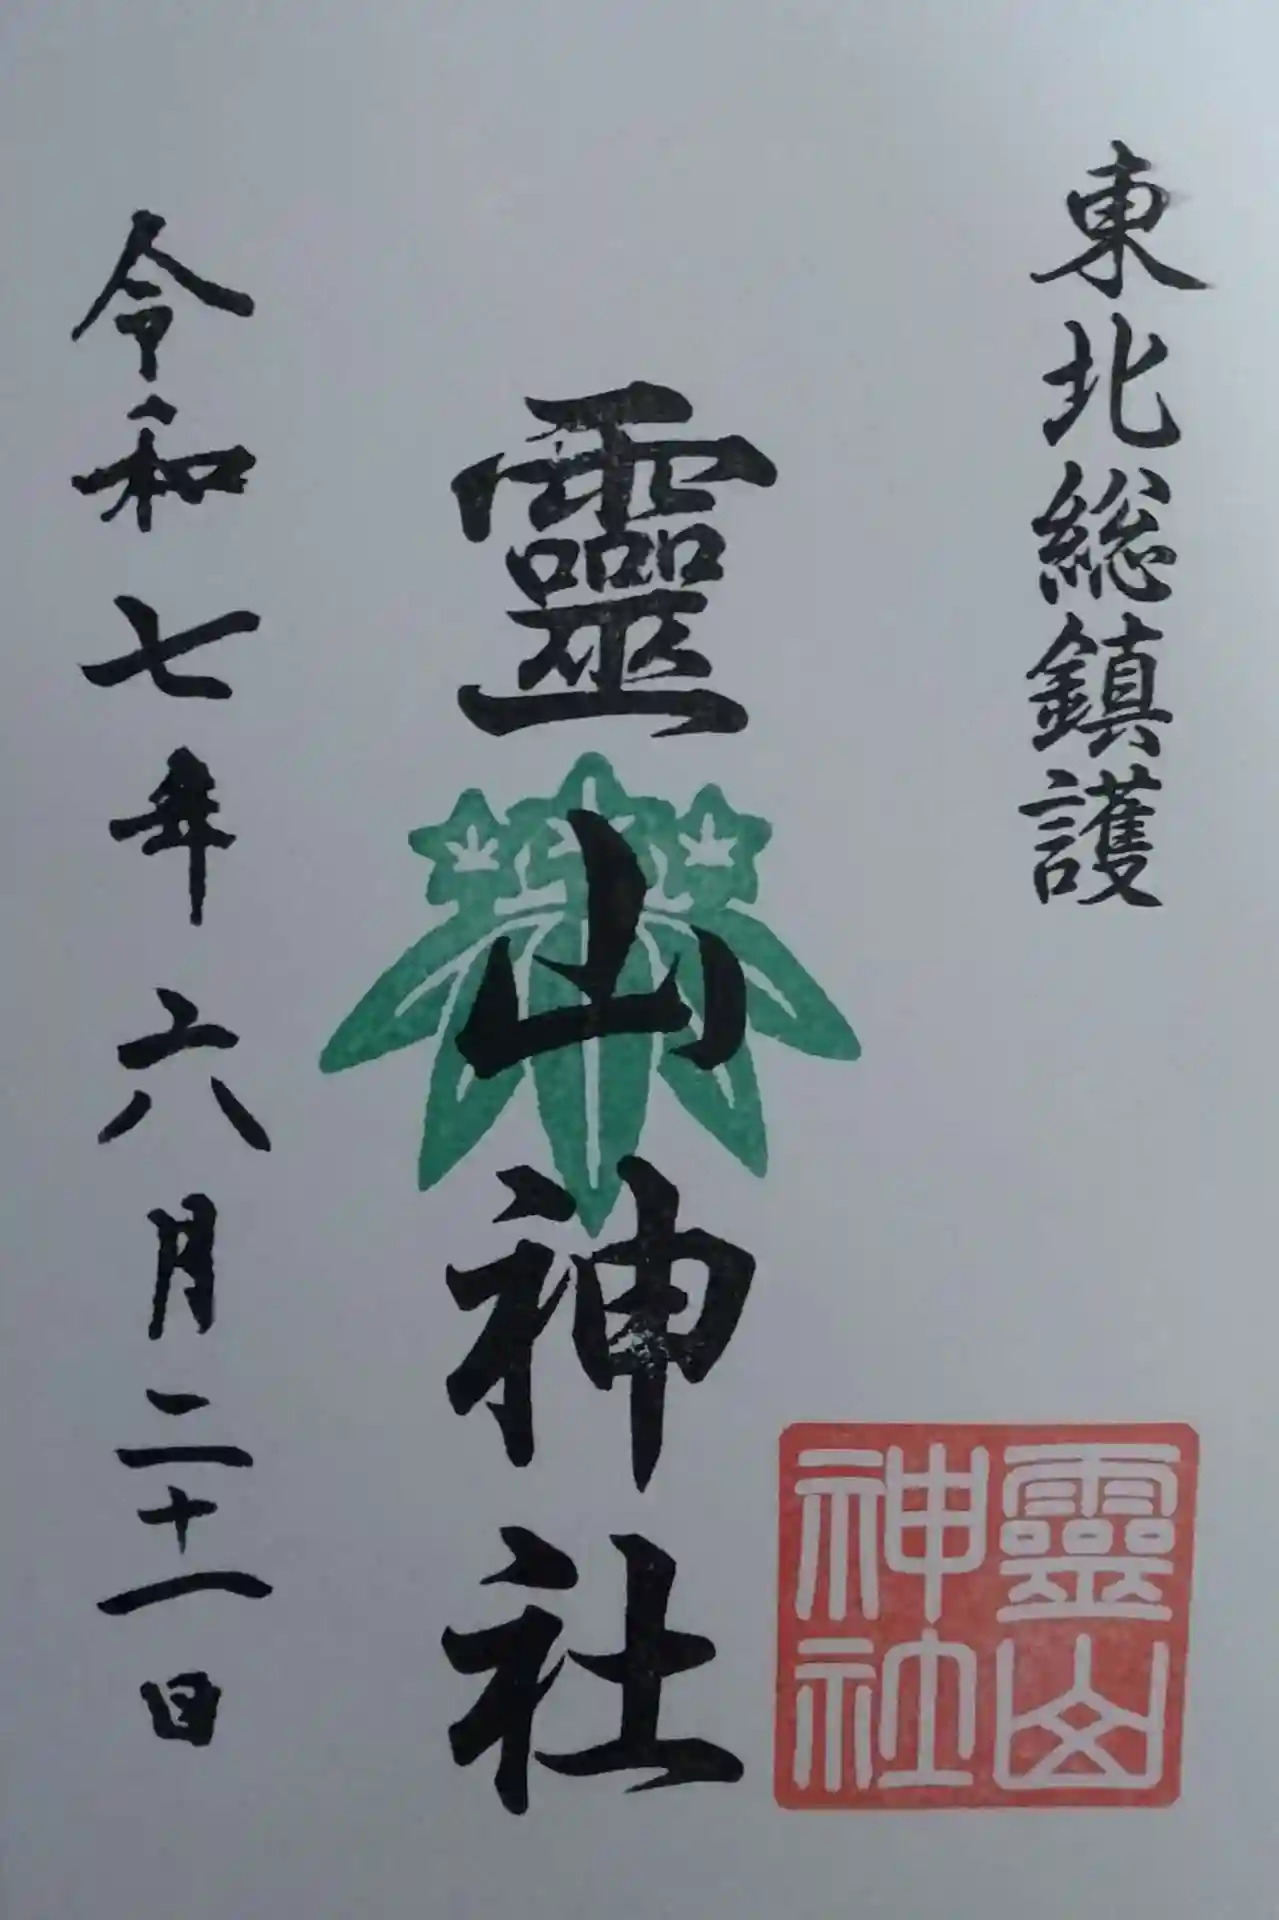 東北総鎮護
靈山神社
靈山
神社
令和七年六月二十一日